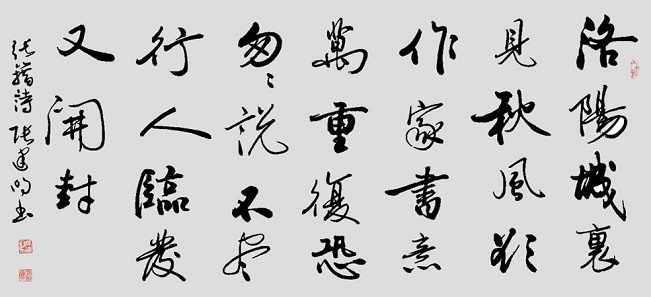 洛陽城裏
見秋風欲
作家書意
萬重復恐
匆〻説不尽
行人臨發
又開封
張籍詩 張建明書